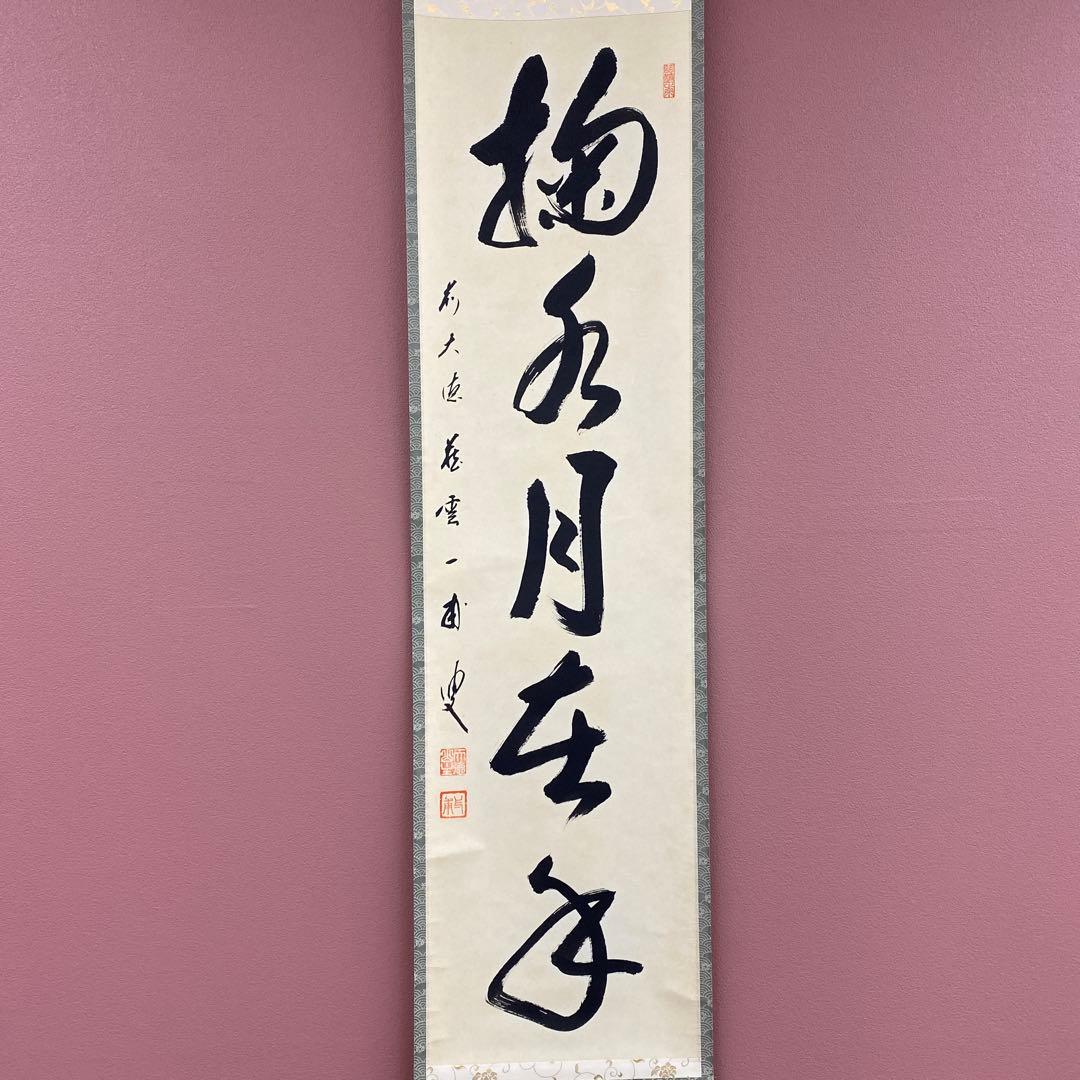 掬水月在手
前大徳 藤雲一甫叟